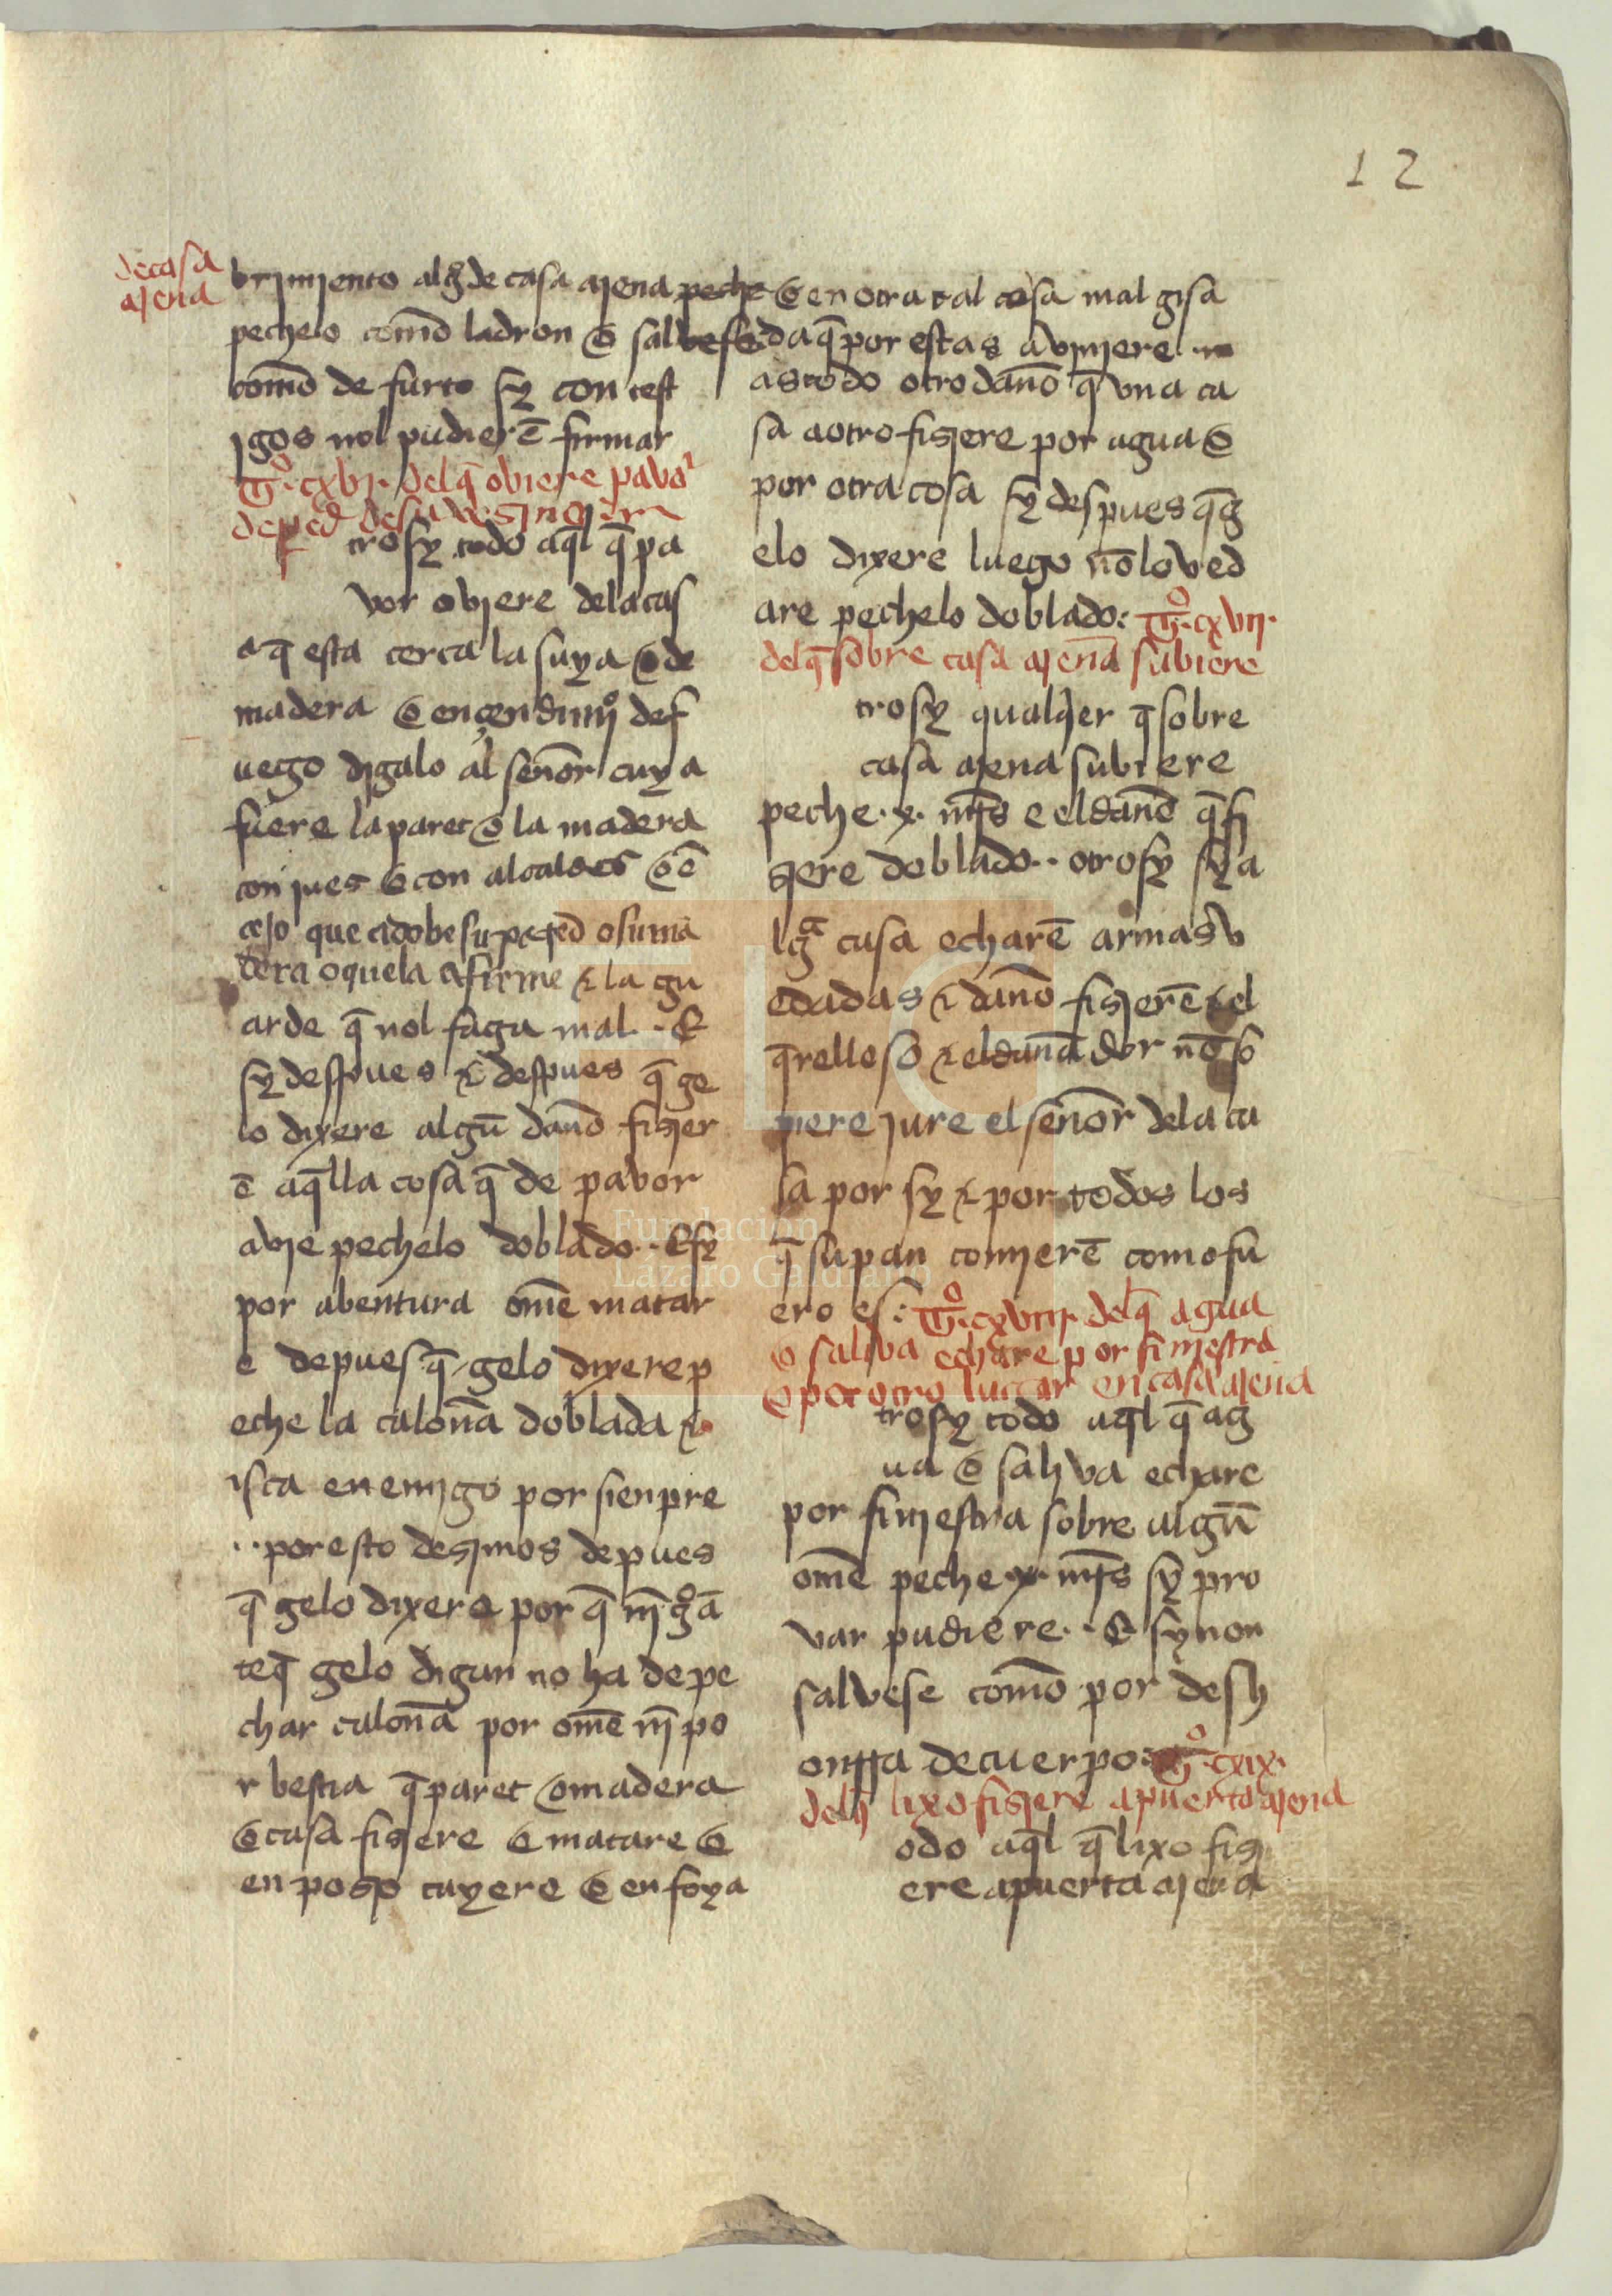 12
de casa
ajena
brimjento alg̃ de casa ajena peche
pechelo comō ladron o salvese
comō de furto sy con test
jgos nol pudierē firmar
tº. cxvj. del q̄ oviere pavor
de pared de su vesino
trosy todo aq̄l q̄ pa
vor ovjere de la cas
a q̄ esta cerca la suya o de
madera o ençendimjº de f
uego djgalo al señor cuya
fuere la paret o la madera
con jues o con alcaldes o ē
cejo que adobe su pared o su ma
dera o que la afirme & la gu
arde q̄ nol faga mal. E
sy despues & despues q̄ ge
lo dixere algū danō fisier
ē aq̄lla cosa q̄ de pavor
avje pechelo doblado. E sy
por abentura omē matar
e depues q̄ gelo dixere p
eche la calonā doblada &
isca enemjgo por sienpre
por esto desimos depues
q̄ gelo dixere por q̄ nj̄gº ā
te q̄ gelo digan no ha de pe
char calonā por omē nj̄ po
r bestia q̄ paret o madera
o casa fisiere o matare o
en poso cayere o en foya
o en otra tal cosa mal gisa
da q̄ por estas avinjere m
as todo otro danō q̄ vna ca
sa a otro fisiere por agua o
por otra cosa sy despues q̄ g
elo dixere luego nō lo ved
are pechelo doblado: tº. cxvij.
del q̄ sobre casa ajena subiere
trosy qualq̄er q̄ sobre
casa ajena subiere
peche .x. mr̄s e el danō q̄ fi
siere doblado. otrosy sy a
lgᵃ casa echarē armas v
edadas & danō fisierē & el
q̄relloso & el danādor nō so
piere jure el señor de la ca
sa por sy & por todos los
q̄ su pan comjerē como fu
ero es: tº. cxviij. del q̄ agua
o saliva echare por finjestra
o por otro lugar en casa ajena
trosy todo aq̄l q̄ ag
ua o saliva echare
por finjestra sobre algū
omē peche .x. mr̄s sy pro
var pudiere. E sy non
salvese comō por desh
onrra de cuerpo: tº. cxix.
del q̄ lixo fisiere a puerta ajena
odo aq̄l q̄ lixo fisi
ere a puerta ajena
FLG
Fundación
Lázaro Galdiano